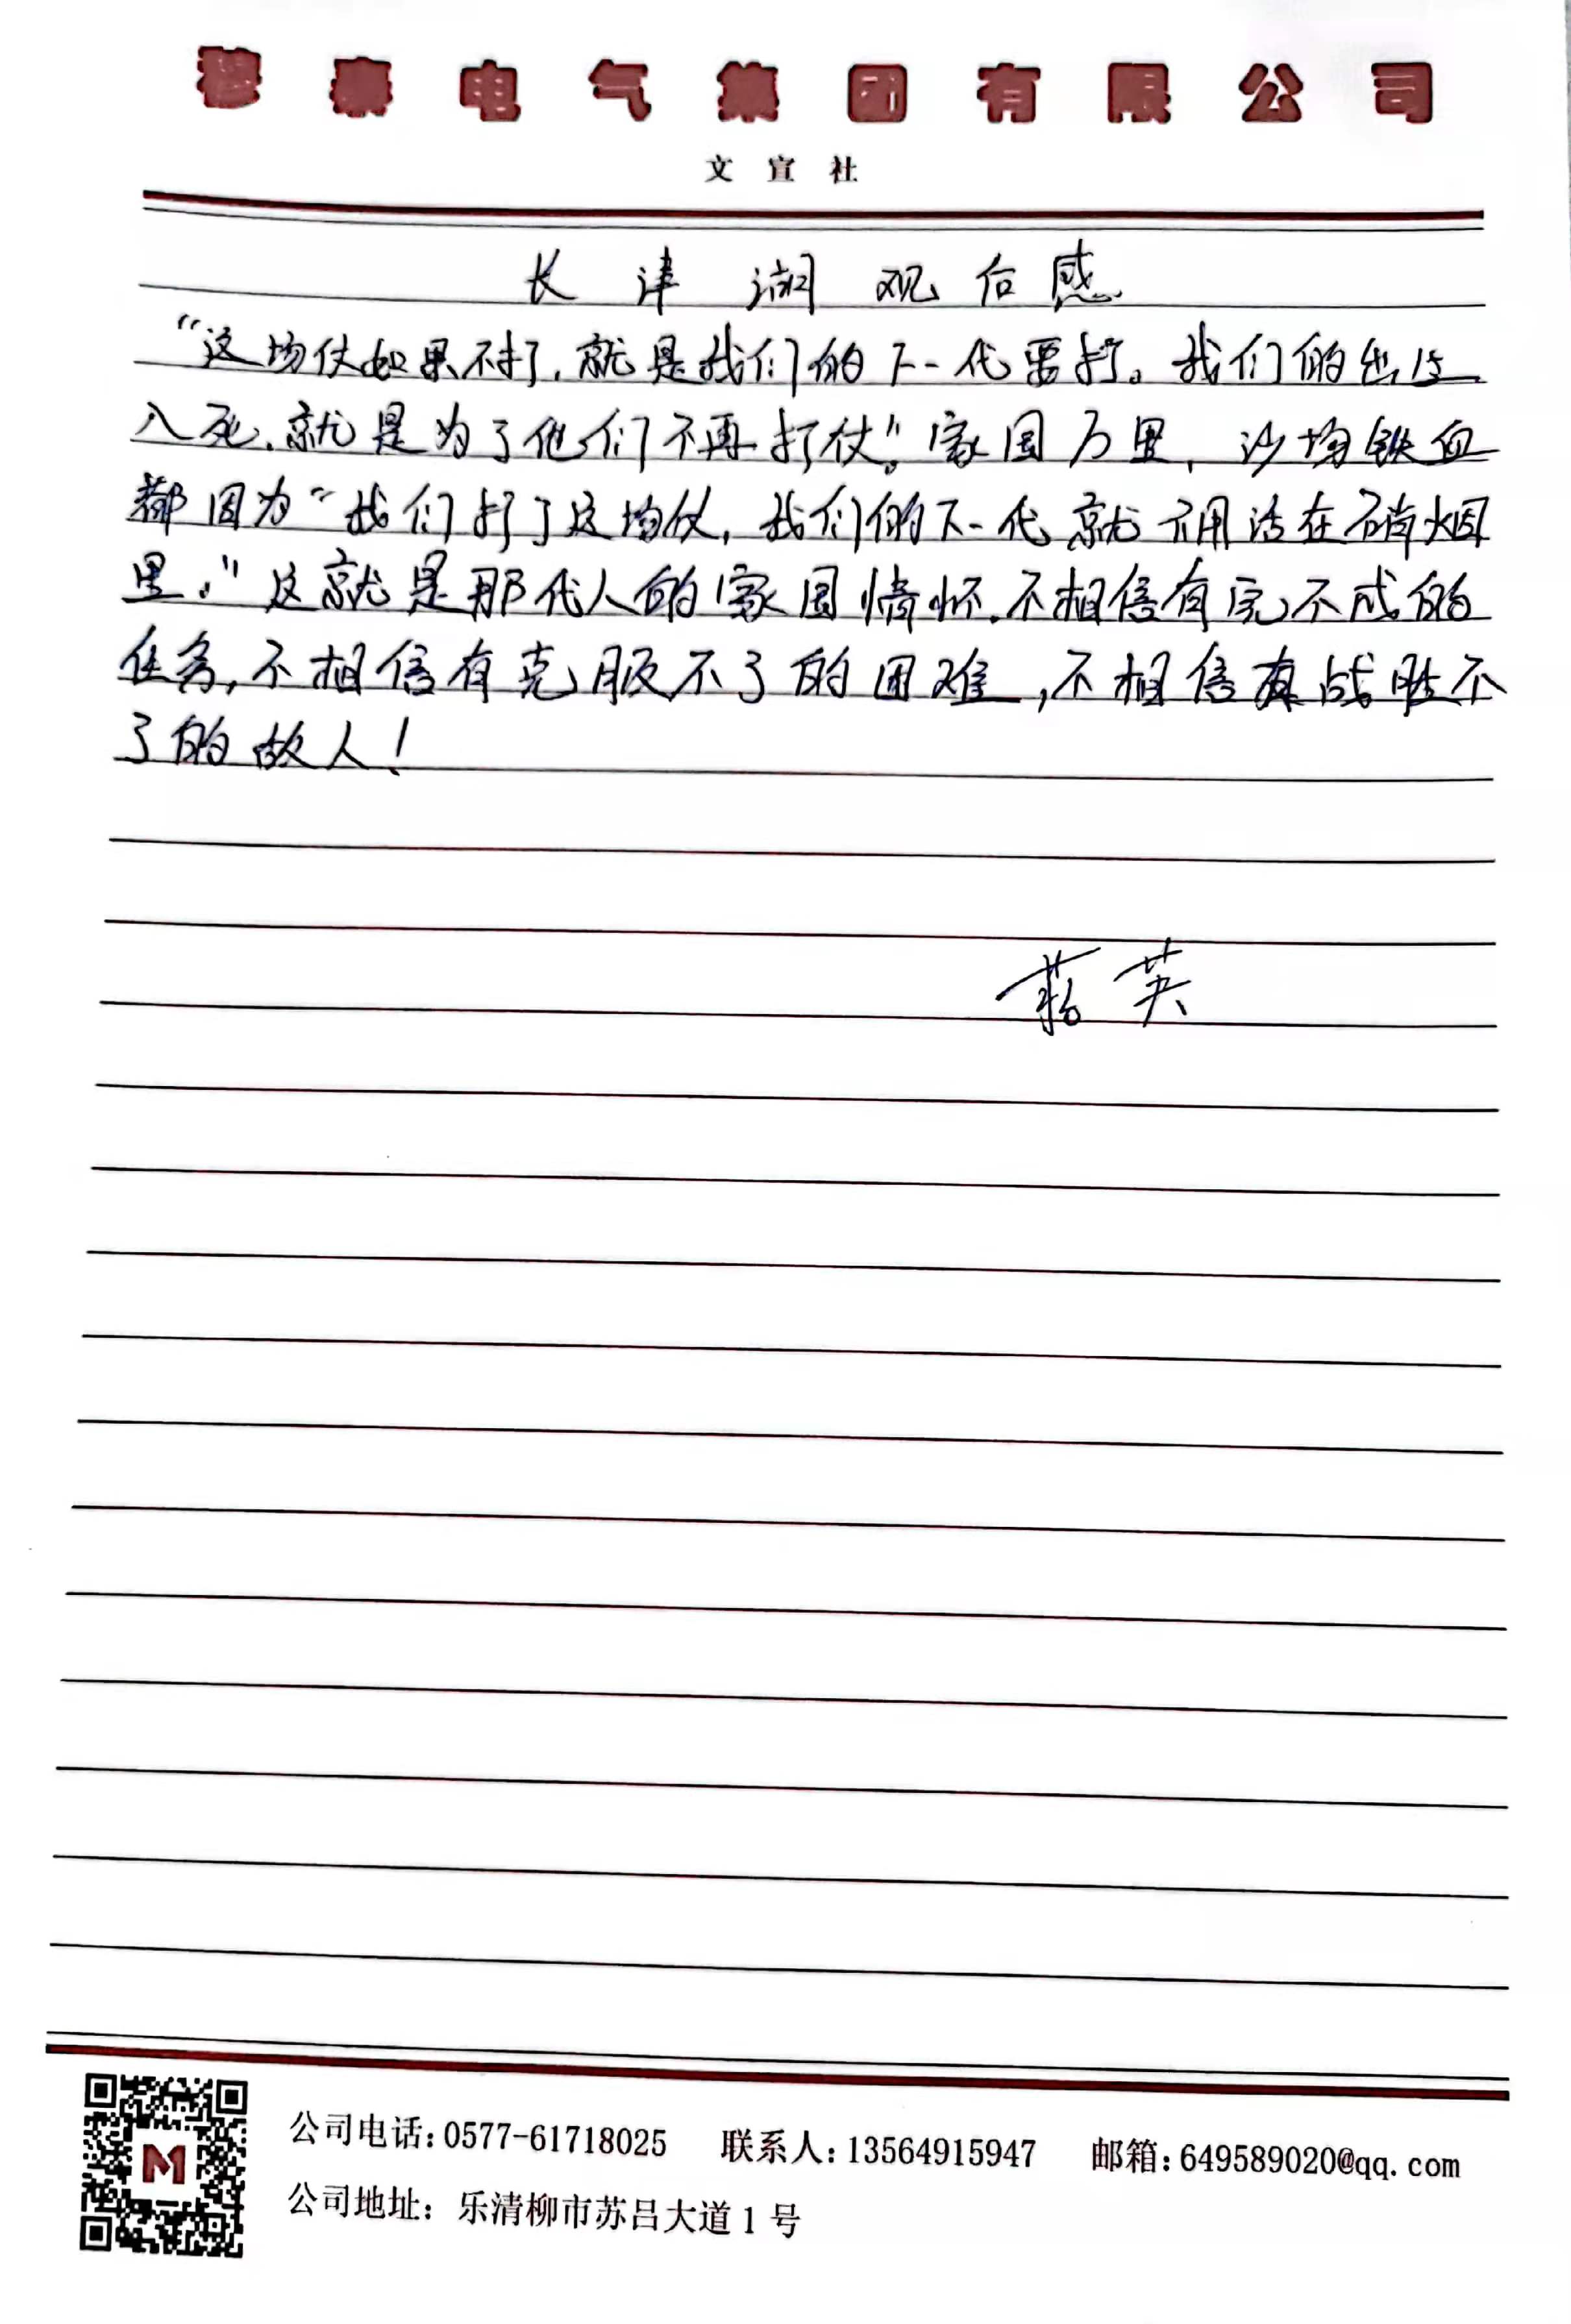 穆泰电气集团有限公司
文宣社
长津湖观后感
“这场仗如果不打,就是我们的下一代要打。我们的出生
入死,就是为了他们不再打仗”。家国万里,沙场铁血
都因为“我们打了这场仗,我们的下一代就不用活在硝烟
里。”这就是那代人的家国情怀.不相信有完不成的
任务,不相信有克服不了的困难,不相信有战胜不
了的敌人!
英
公司电话:0577-61718025 联系人:13564915947 邮箱:649589020@qq.com
公司地址:乐清柳市苏吕大道1号